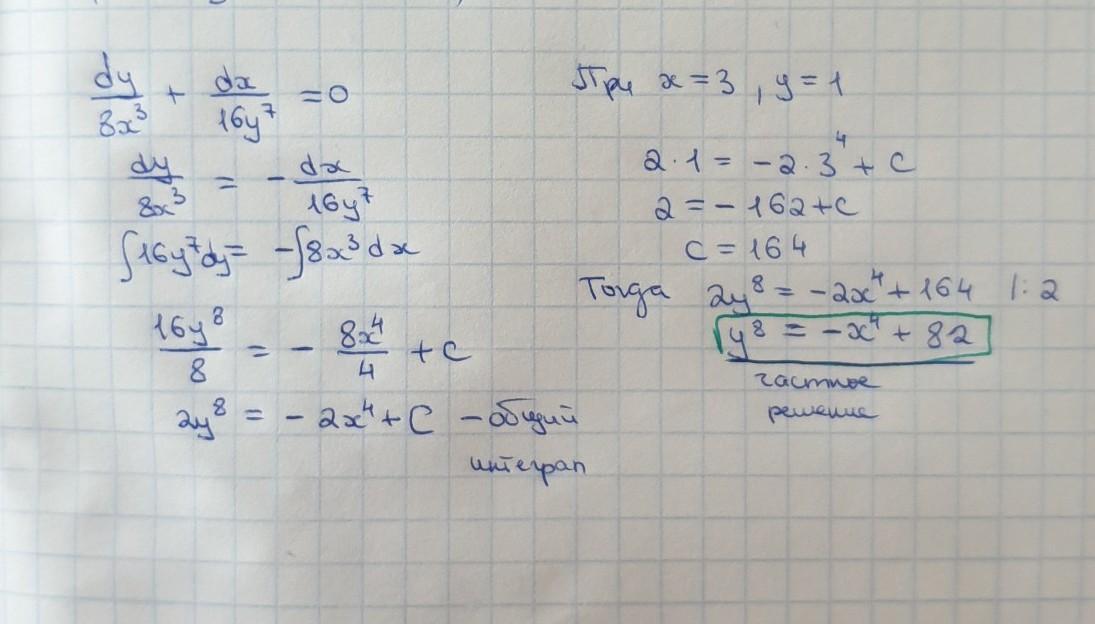 dy/8x³ + dx/16y⁷ = 0
dy/8x³ = - dx/16y⁷
∫16y⁷dy = -∫8x³dx
16y⁸/8 = - 8x⁴/4 + C
2y⁸ = - 2x⁴ + C - общий
интеграл
При x = 3, y = 1
2·1 = -2·3⁴ + C
2 = - 162 + C
C = 164
Тогда 2y⁸ = -2x⁴ + 164 |:2
y⁸ = -x⁴ + 82
частное
решение